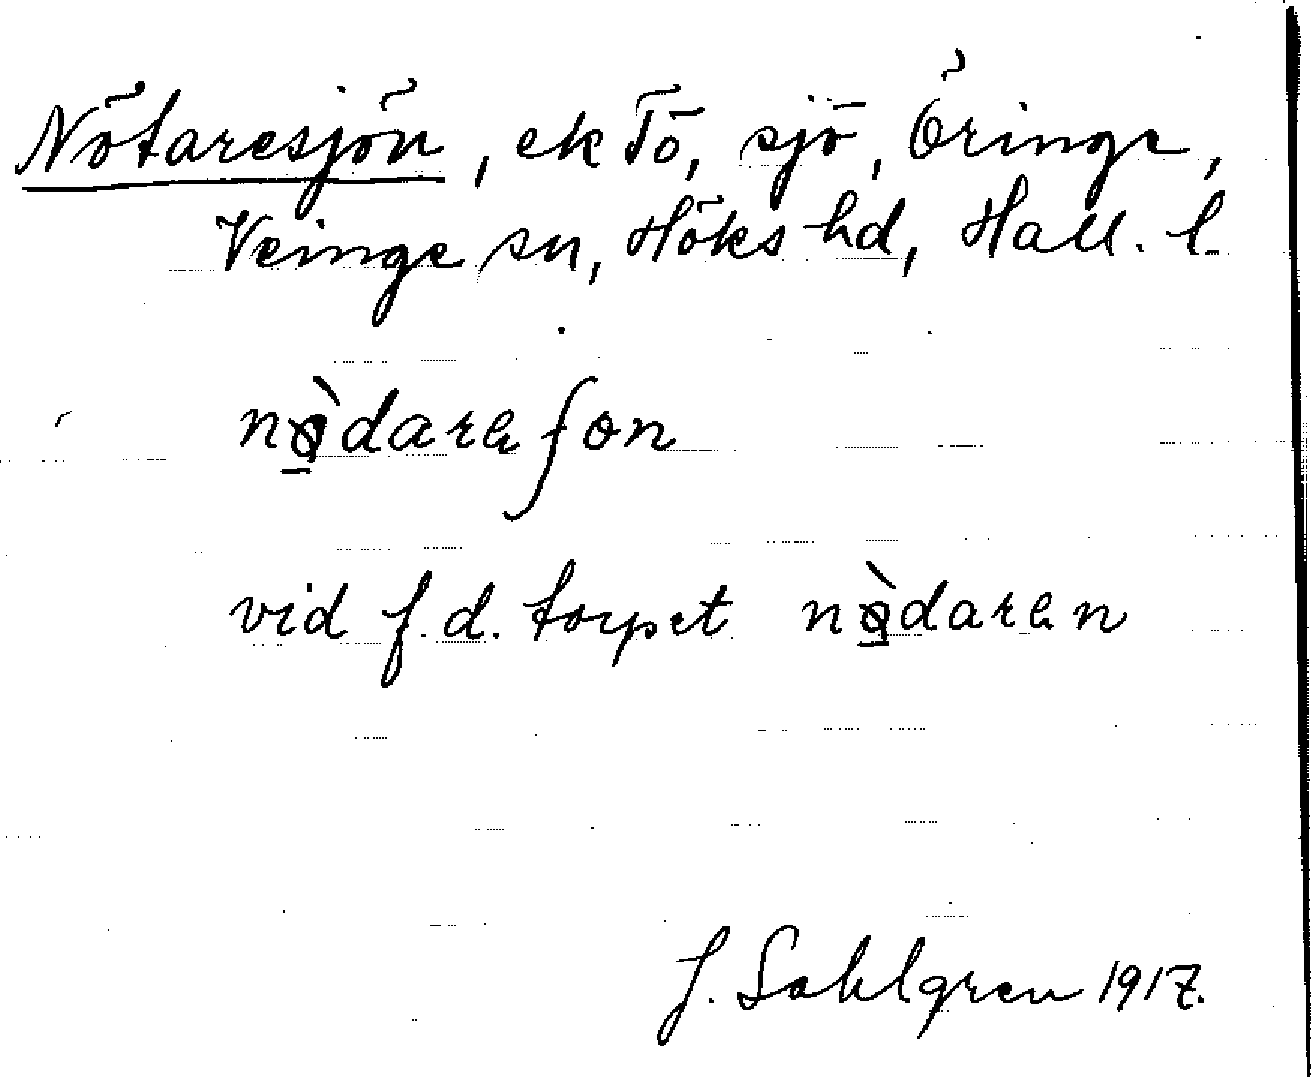 Nötaresjön, ek Tö, sjö, Öringe,
Veinge sn, Höks hd, Hall. l.
nø̀darɐʃøn
vid f.d. torpet nø̀darɐn
J. Sahlgren 1917.